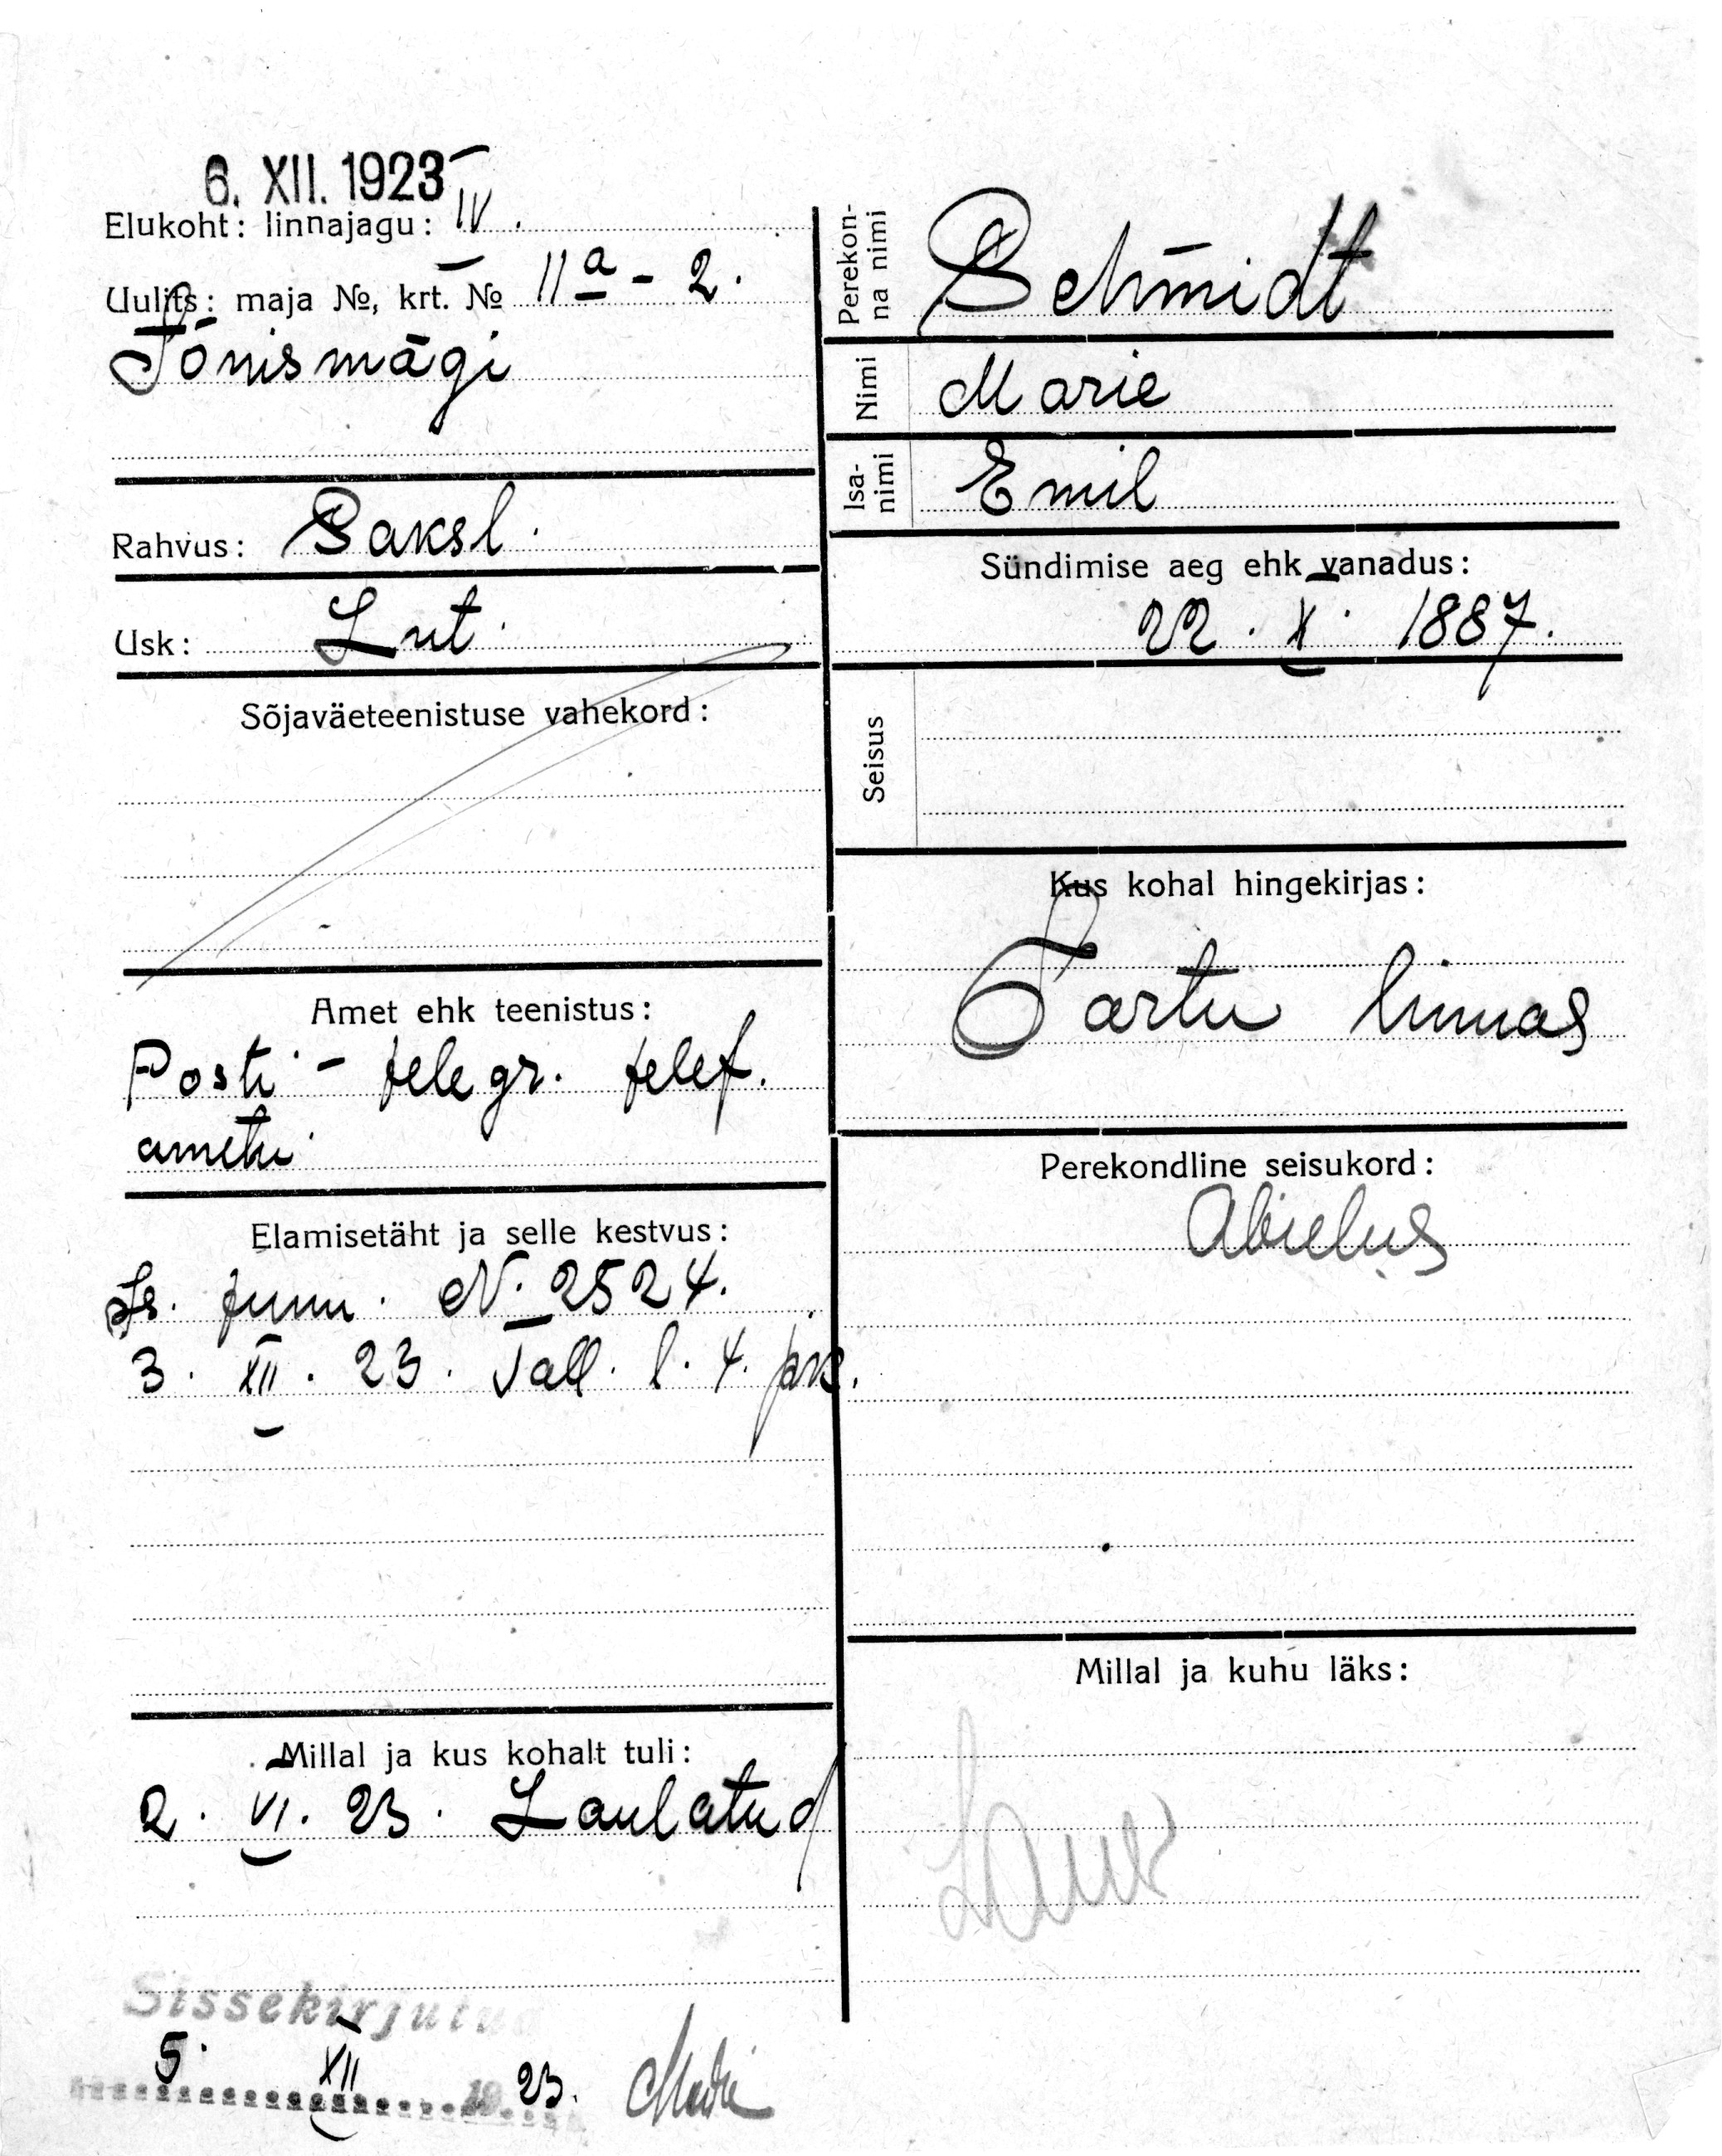 6. XII. 1923
Elukoht: linnajagu: IV.
Uulits: maja №, krt. № 11a - 2.
Tõnismägi
Rahvus: Saksl.
Usk: Lut.
Sõjaväeteenistuse vahekord:
Amet ehk teenistus:
Posti - telegr. telef.
ametn.
Elamisetäht ja selle kestvus:
Is. tunn. N. 2524.
3. XII. 23. Tall. l. 4. jsk.
Millal ja kus kohalt tuli:
2. VI. 23. Laulatud
Sissekirjutud
5. XII 1923.
Perekon-
na nimi
Schmidt
Nimi
Marie
Isa-
nimi
Emil
Sündimise aeg ehk vanadus:
22. X. 1887.
Seisus
Kus kohal hingekirjas:
Tartu linnas
Perekondline seisukord:
Abielus
Millal ja kuhu läks: